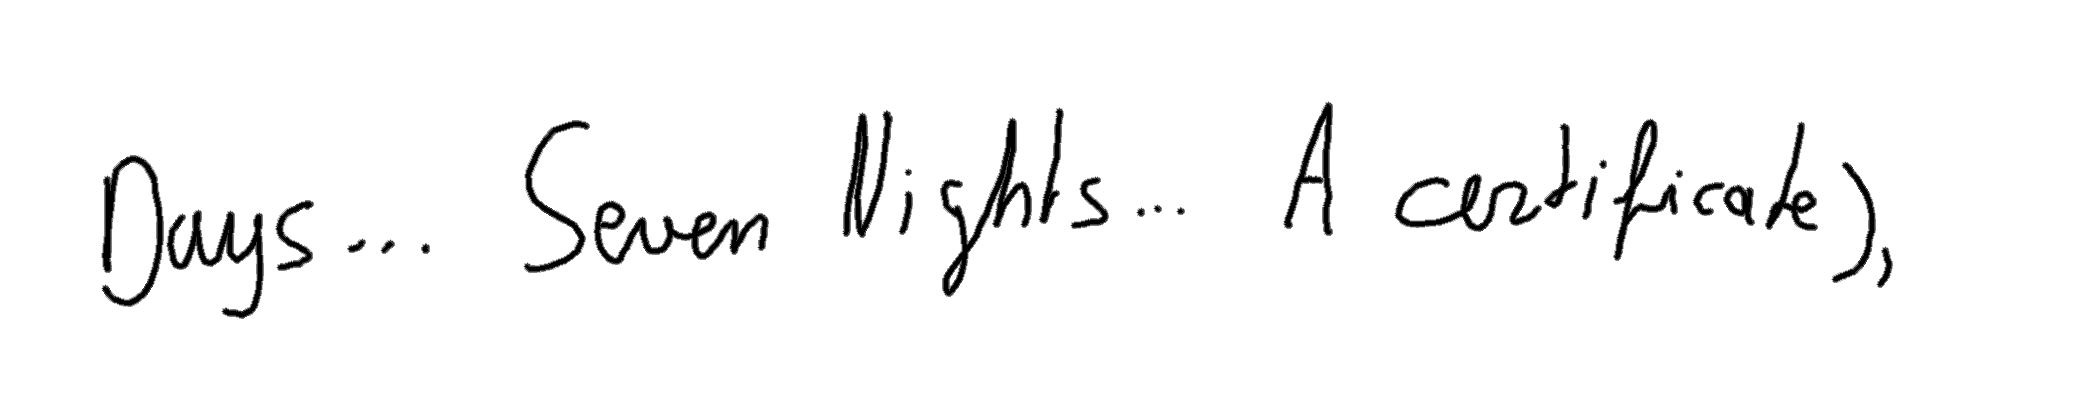 Days... Seven Nights... A certificate),